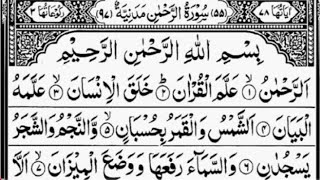 اٰیَاتُهَا ٧٨ (٥٥) سُوْرَةُ الرَّحْمٰنِ مَدَنِيَّةٌ (٩٧) رُكُوْعَاتُهَا ٣
بِسْمِ اللّٰهِ الرَّحْمٰنِ الرَّحِيْمِ
اَلرَّحْمٰنُ ۙ﴿١﴾ عَلَّمَ الْقُرْاٰنَ ؕ﴿٢﴾ خَلَقَ الْاِنْسَانَ ۙ﴿٣﴾ عَلَّمَهُ
الْبَيَانَ ﴿٤﴾ اَلشَّمْسُ وَالْقَمَرُ بِحُسْبَانٍ ﴿٥﴾ وَّالنَّجْمُ وَالشَّجَرُ
يَسْجُدٰنِ ﴿٦﴾ وَالسَّمَآءَ رَفَعَهَا وَوَضَعَ الْمِيْزَانَ ۙ﴿٧﴾ اَلَّا